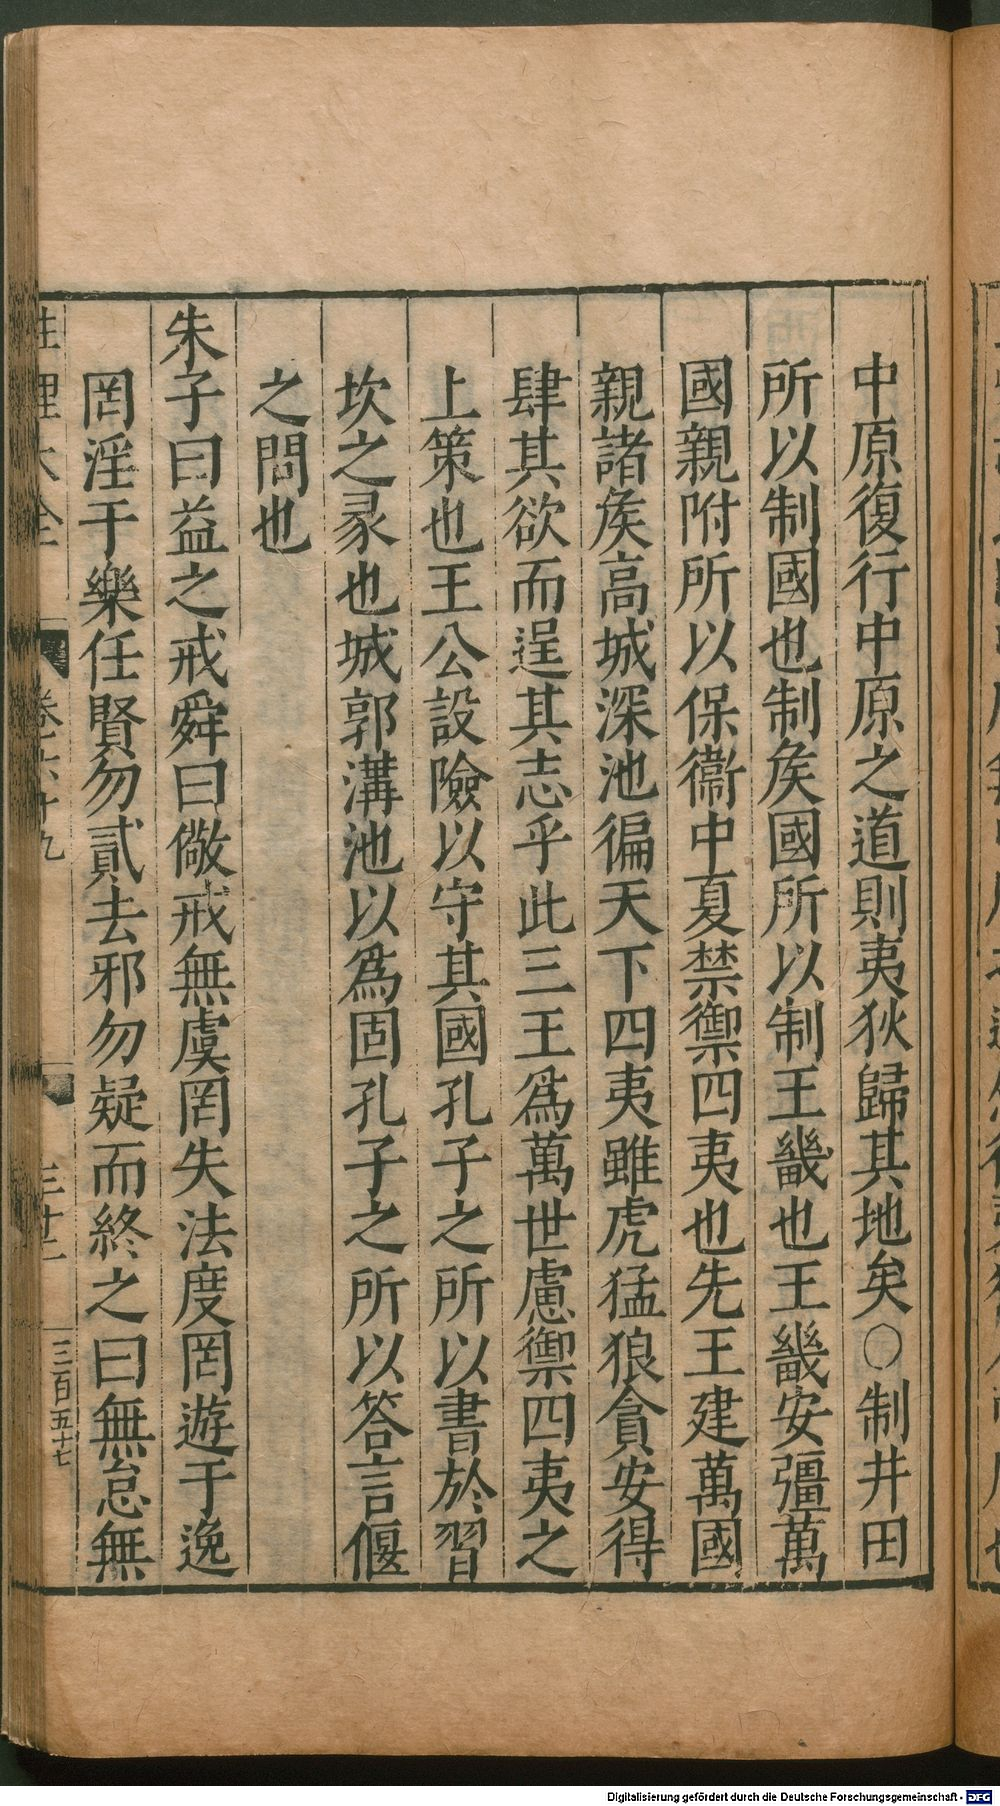 中原復行中原之道則夷狄歸其地矣○制井田
所以制國也制矦國所以制王畿也王畿安彊萬
國親附所以保衞中夏禁禦四夷也先王建萬國
親諸矦高城深池徧天下四夷雖虎猛狼貪安得
肆其欲而逞其志乎此三王爲萬世慮禦四夷之
上策也王公設險以守其國孔子之所以書於習
坎之彖也城郭溝池以爲固孔子之所以答言偃
之問也
朱子曰益之戒舜曰儆戒無虞罔失法度罔遊于逸
罔淫于樂任賢勿貳去邪勿疑而終之曰無怠無
性理大全 卷六十九 三十二 三百五十七
Digitalisierung gefördert durch die Deutsche Forschungsgemeinschaft - DFG